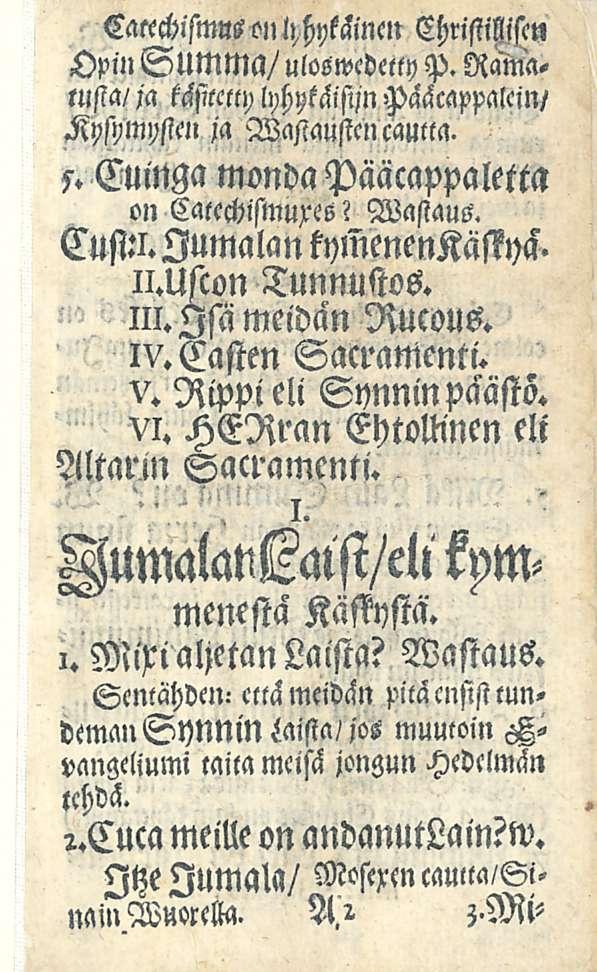 Catechismus on lyhykäinen Christillisen
Opin Summa/ uloswedetty P. Rama-
tusta/ ja käsitetty lyhykäisijn Pääcappalein/
Kysymysten ja Wastausten cautta.
5. Cuinga monda Pääcappaletta
on Catechismuxes? Wastaus.
Cusi: I. Jumalan kym̃enen Käskyä.
II. Uscon Tunnustos.
III. Isä meidän Rucous.
IV. Casten Sacramenti.
V. Rippi eli Synnin päästö.
VI. HERran Ehtollinen eli
Altarin Sacramenti.
I.
Jumalan Laist/ eli kym-
menestä Käskystä.
1. Mixi aljetan Laista? Wastaus.
Sentähden: että meidän pitä ensist tun-
deman Synnin Laista/ jos muutoin E-
vangeliumi taita meisä jongun Hedelmän
tehdä.
2. Cuca meille on andanut Lain? W.
Itze Jumala/ Mosexen cautta/ Si-
nain Wuorella. A 2 3. Mi-